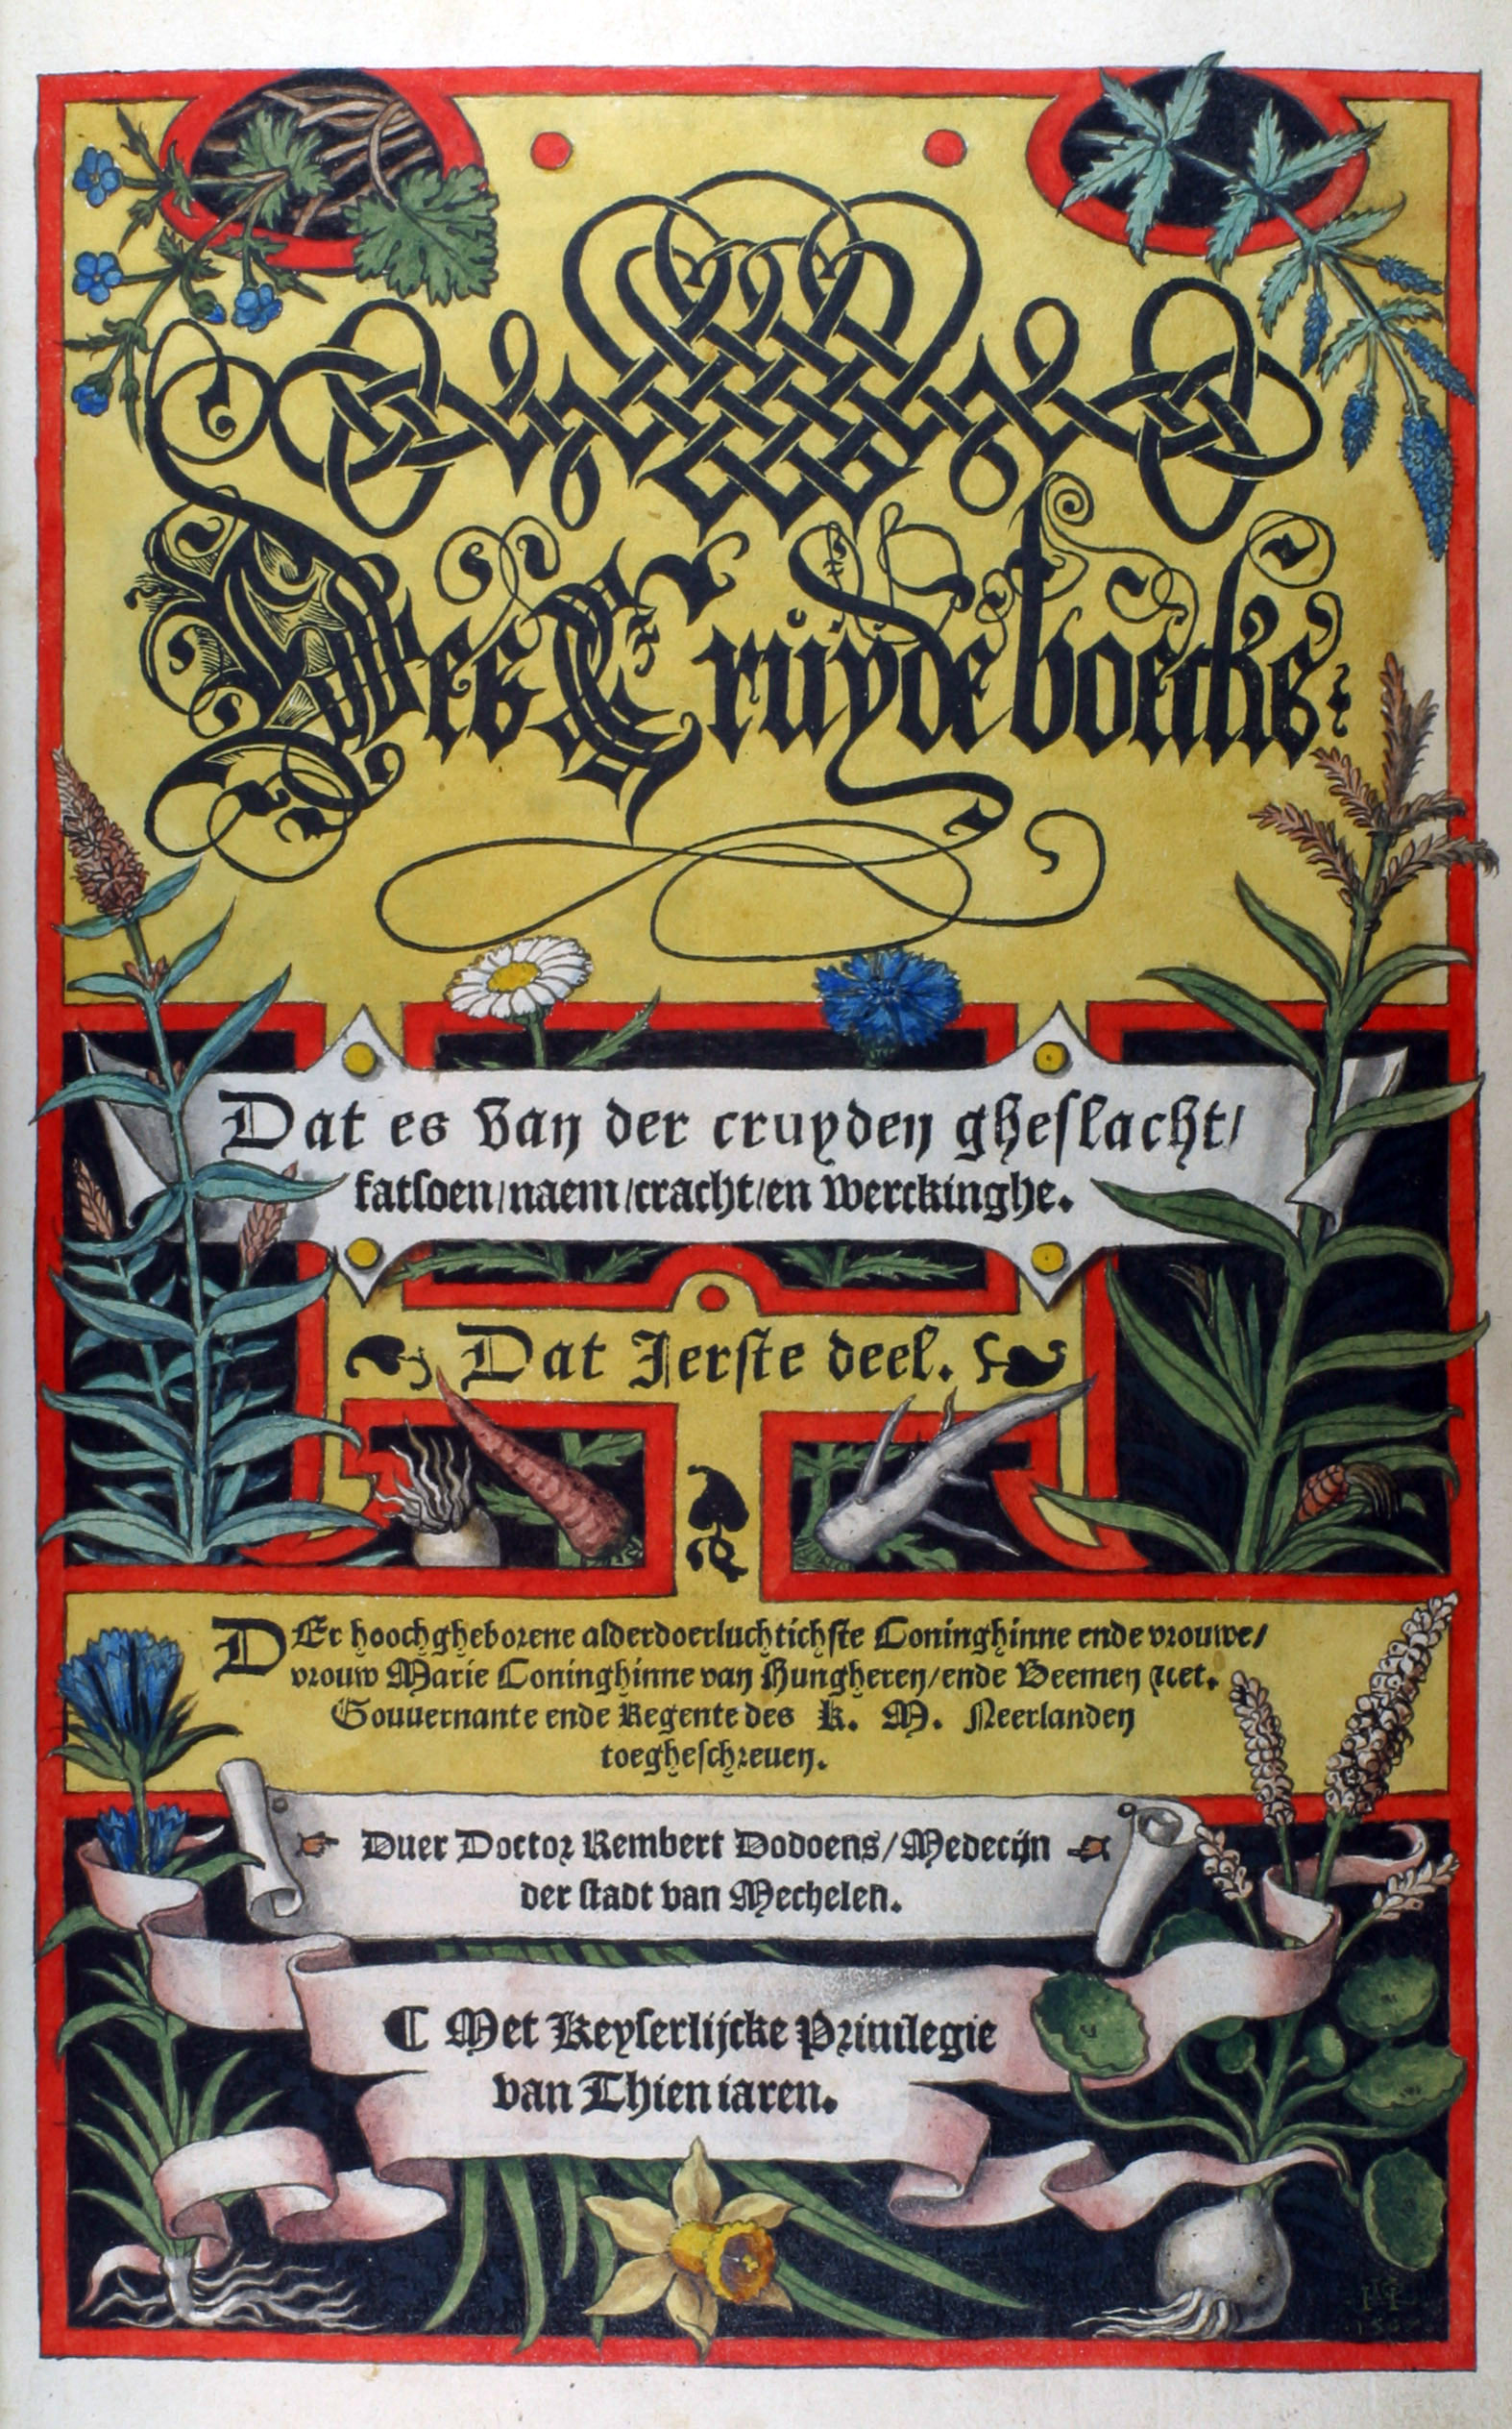 Des Cruÿdeboecks
Dat es van der cruyden gheslacht/
fatsoen/naem/cracht/en werckinghe.
Dat Ierste deel.
DEr hoochgheborene alderdoerluchtichste Coninghinne ende vrouwe/
vrouw Marie Coninghinne van Hungheren/ende Beemen ⁊cet.
Gouuernante ende Regente des K. M. Neerlanden
toegheschreuen.
Duer Doctor Rembert Dodoens/Medecijn
der stadt van Mechelen.
¶ Met Keyserlijcke Priuilegie
van Thien iaren.